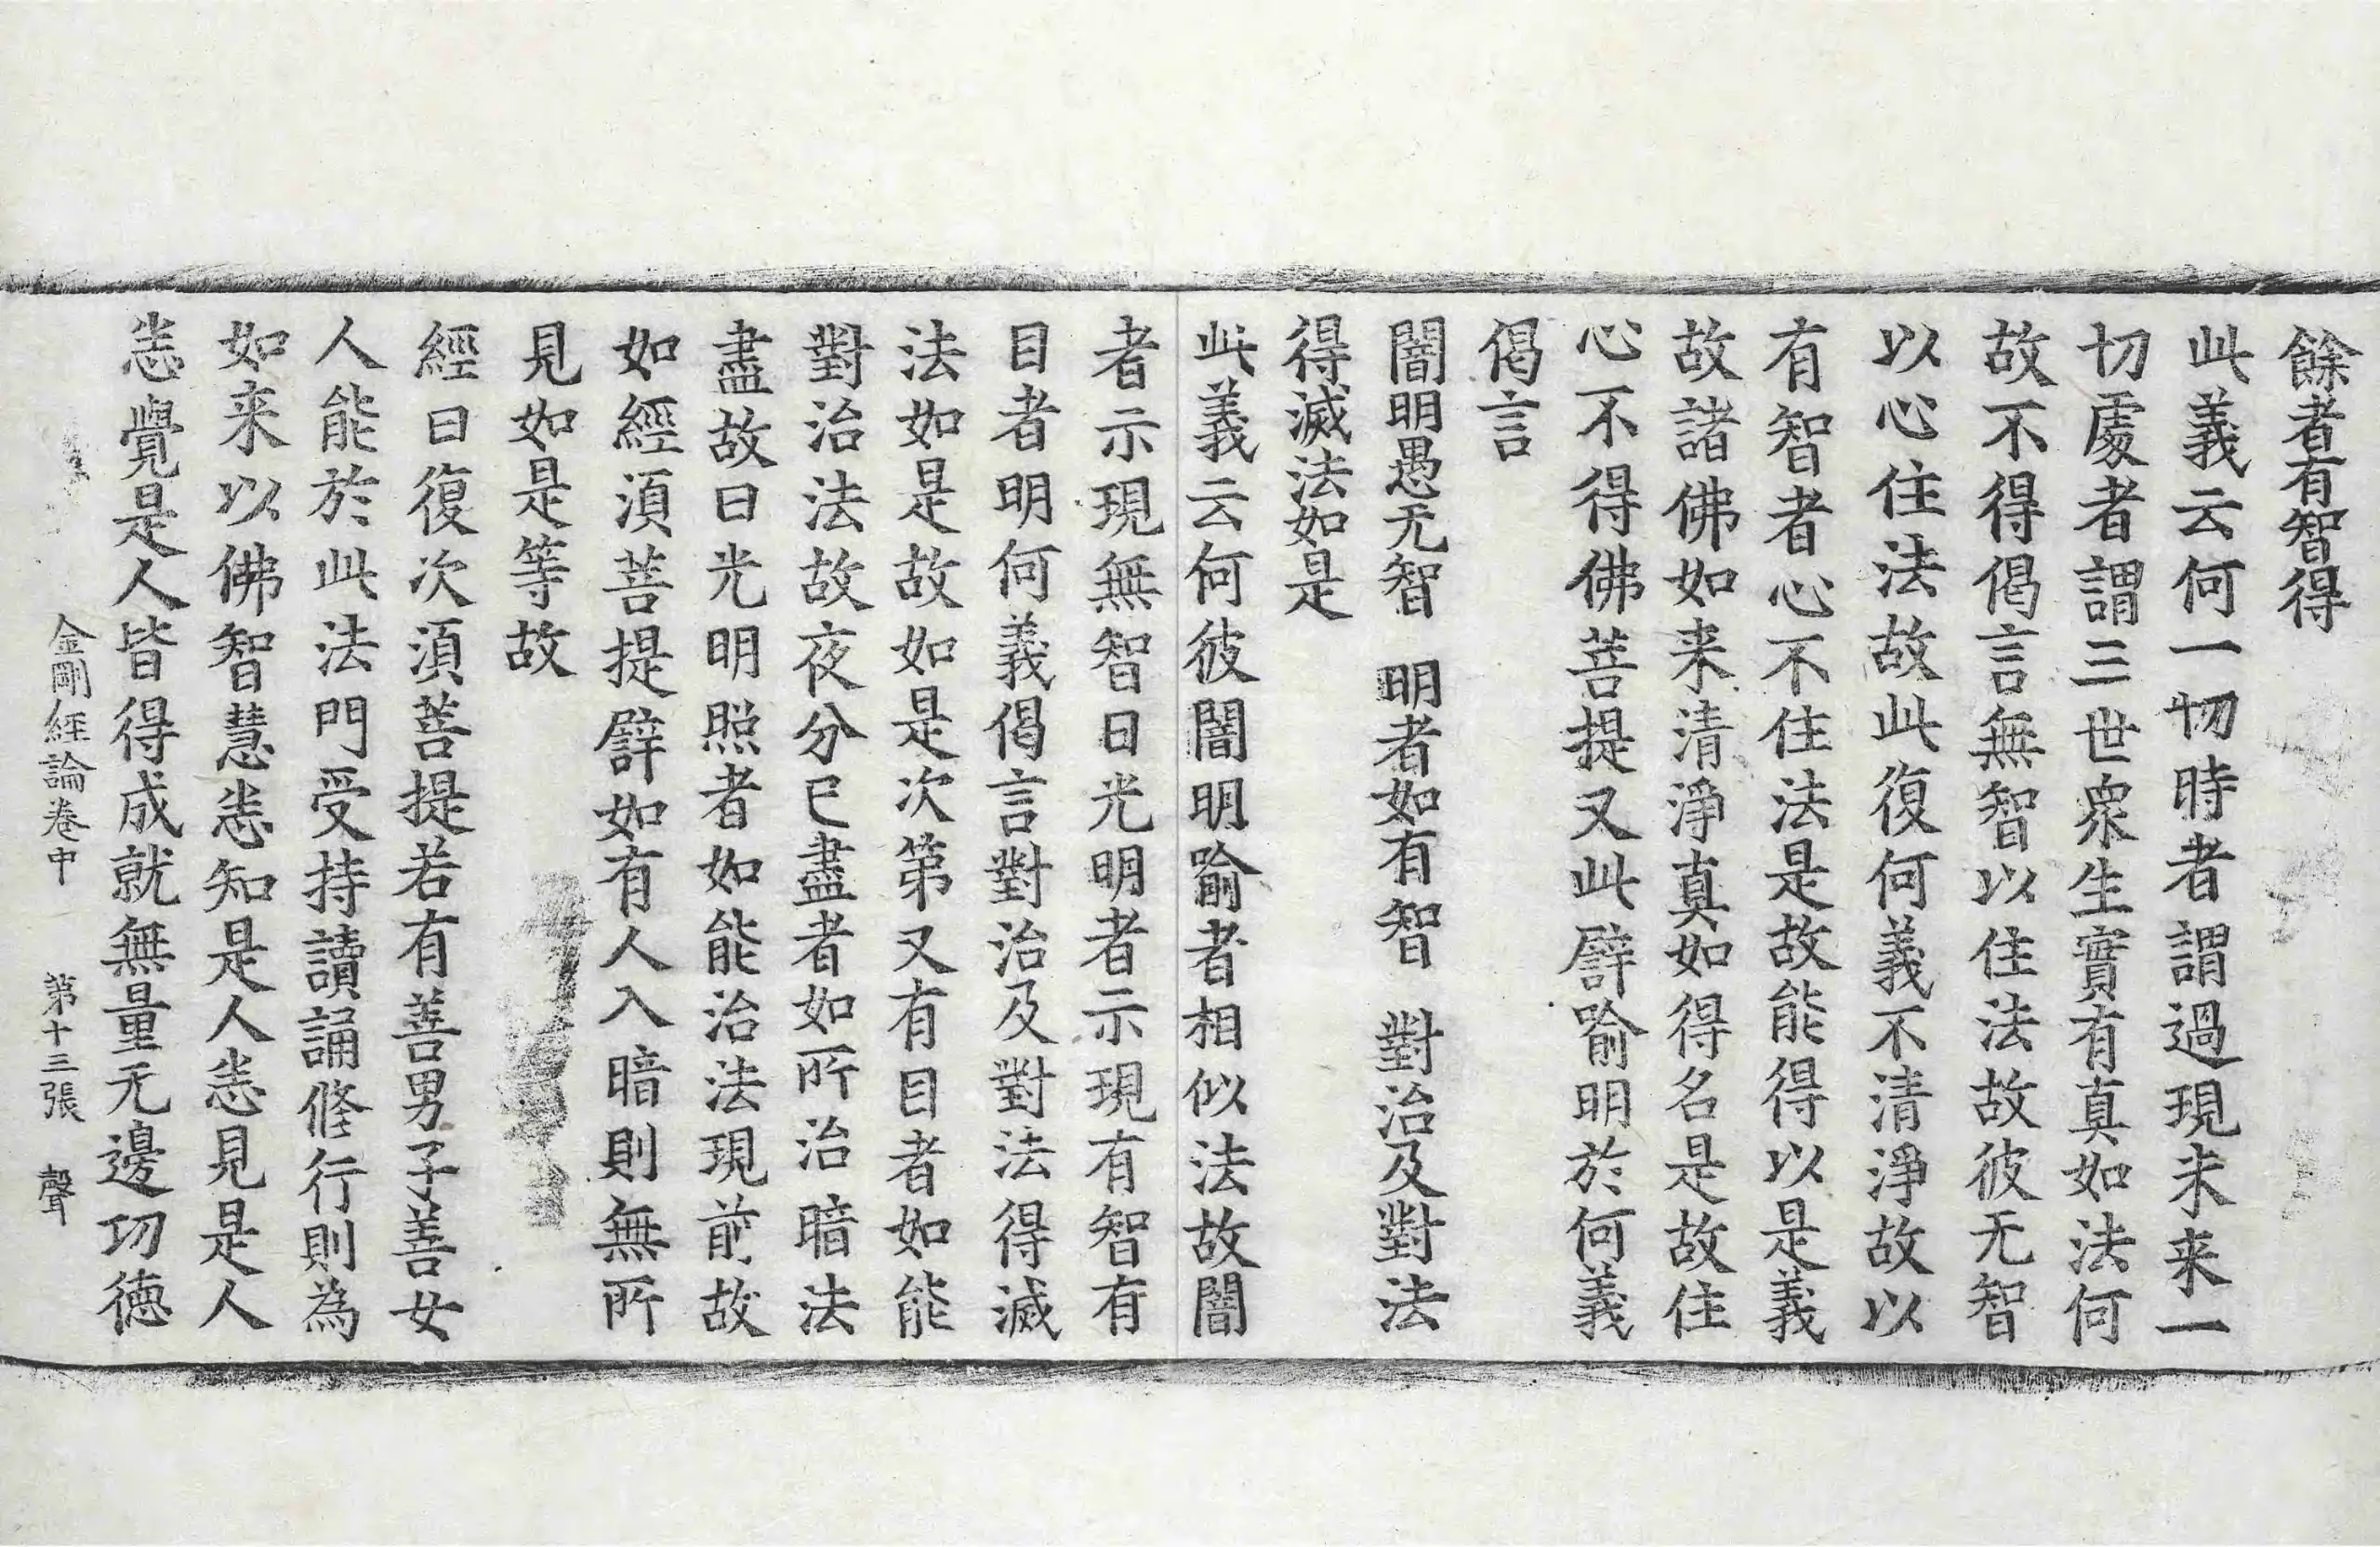 餘者有智得
此義云何一切時者謂過現未来一
切處者謂三世衆生實有真如法何
故不得偈言無智以住法故彼无智
以心住法故此復何義不清淨故以
有智者心不住法是故能得以是義
故諸佛如来清淨真如得名是故住
心不得佛菩提又此譬喻明於何義
偈言
闇明愚无智　明者如有智　對治及對法
得滅法如是
此義云何彼闇明喻者相似法故闇
者示現無智日光明者示現有智有
目者明何義偈言對治及對法得滅
法如是故如是次第又有目者如能
對治法故夜分已盡者如所治暗法
盡故日光明照者如能治法現前故
如經須菩提譬如有人入暗則無所
見如是等故
經曰復次須菩提若有善男子善女
人能於此法門受持讀誦修行則為
如来以佛智慧恙知是人恙見是人
恙覺是人皆得成就無量无邊功德
金剛經論卷中　第十三張　聲